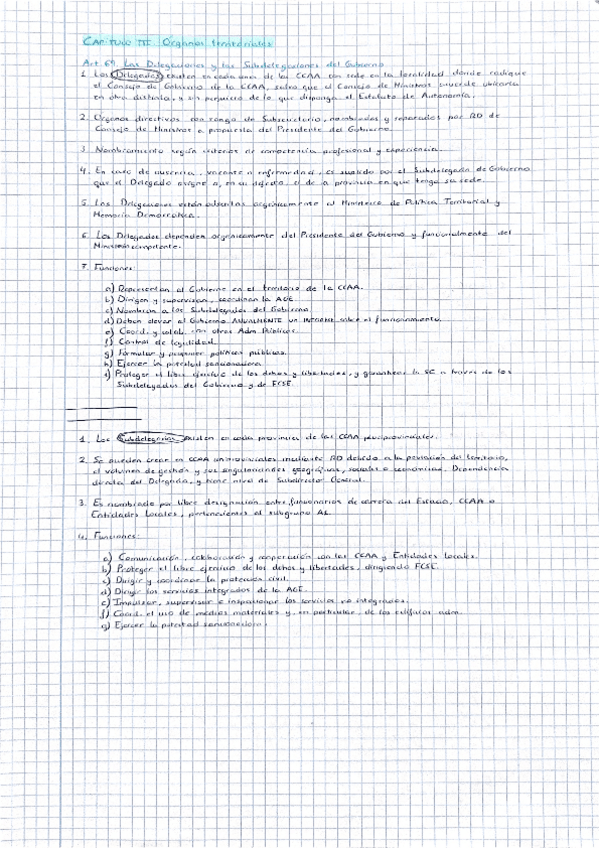 CAPÍTULO III: Órganos territoriales
Art 69 Las Delegaciones y las Subdelegaciones del Gobierno
1. Los Delegados existen en cada una de las CCAA con sede en la localidad donde radique
el Consejo de Gobierno de la CCAA, salvo que el Consejo de Ministros acuerde ubicarla
en otra distinta, y sin perjuicio de lo que disponga el Estatuto de Autonomía.
2. Órganos directivos con rango de Subsecretario, nombrados y separados por RD de
Consejo de Ministros a propuesta del Presidente del Gobierno.
3. Nombramiento según criterios de competencia profesional y experiencia.
4. En caso de ausencia, vacante o enfermedad, es suplido por el Subdelegado de Gobierno
que el Delegado asigne o, en su defecto, el de la provincia en que tenga su sede.
5. Las Delegaciones están adscritas orgánicamente al Ministerio de Política Territorial y
Memoria Democrática.
6. Los Delegados dependen orgánicamente del Presidente del Gobierno y funcionalmente del
Ministerio competente.
7. Funciones:
a) Representan al Gobierno en el territorio de la CCAA.
b) Dirigen y supervisan, coordinan la AGE
c) Nombran a los Subdelegados del Gobierno
d) Deben elevar al Gobierno ANUALMENTE un INFORME sobre el funcionamiento.
e) Coord. y colab. con otras Adm Públicas.
f) Control de legalidad.
g) Formular y proponer políticas públicas.
h) Ejercer la potestad sancionadora
i) Proteger el libre ejercicio de los dchos y libertades, y garantizar la SC a través de los
Subdelegados del Gobierno y de FCSE.
1. Los Subdelegados existen en cada provincia de las CCAA pluriprovinciales.
2. Se pueden crear en CCAA uniprovinciales mediante RD debido a la población del territorio,
el volumen de gestión y sus singularidades geográficas, sociales o económicas. Dependencia
directa del Delegado, y tiene nivel de Subdirector General.
3. Es nombrado por libre designación entre funcionarios de carrera del Estado, CCAA o
Entidades Locales, pertenecientes al subgrupo A1.
4. Funciones:
a) Comunicación, colaboración y cooperación con las CCAA y Entidades Locales.
b) Proteger el libre ejercicio de los dchos y libertades, dirigiendo FCSE.
c) Dirigir y coordinar la protección civil.
d) Dirigir los servicios integrados de la AGE.
e) Impulsar, supervisar e inspeccionar los servicios no integrados.
f) Coord. el uso de medios materiales y, en particular, de los edificios adm.
g) Ejercer la potestad sancionadora.